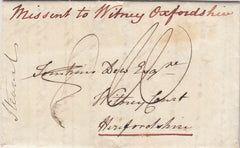 Missent to Witney Oxfordshire
Tomkins Dew Esqre
Whitney Court
Herefordshire